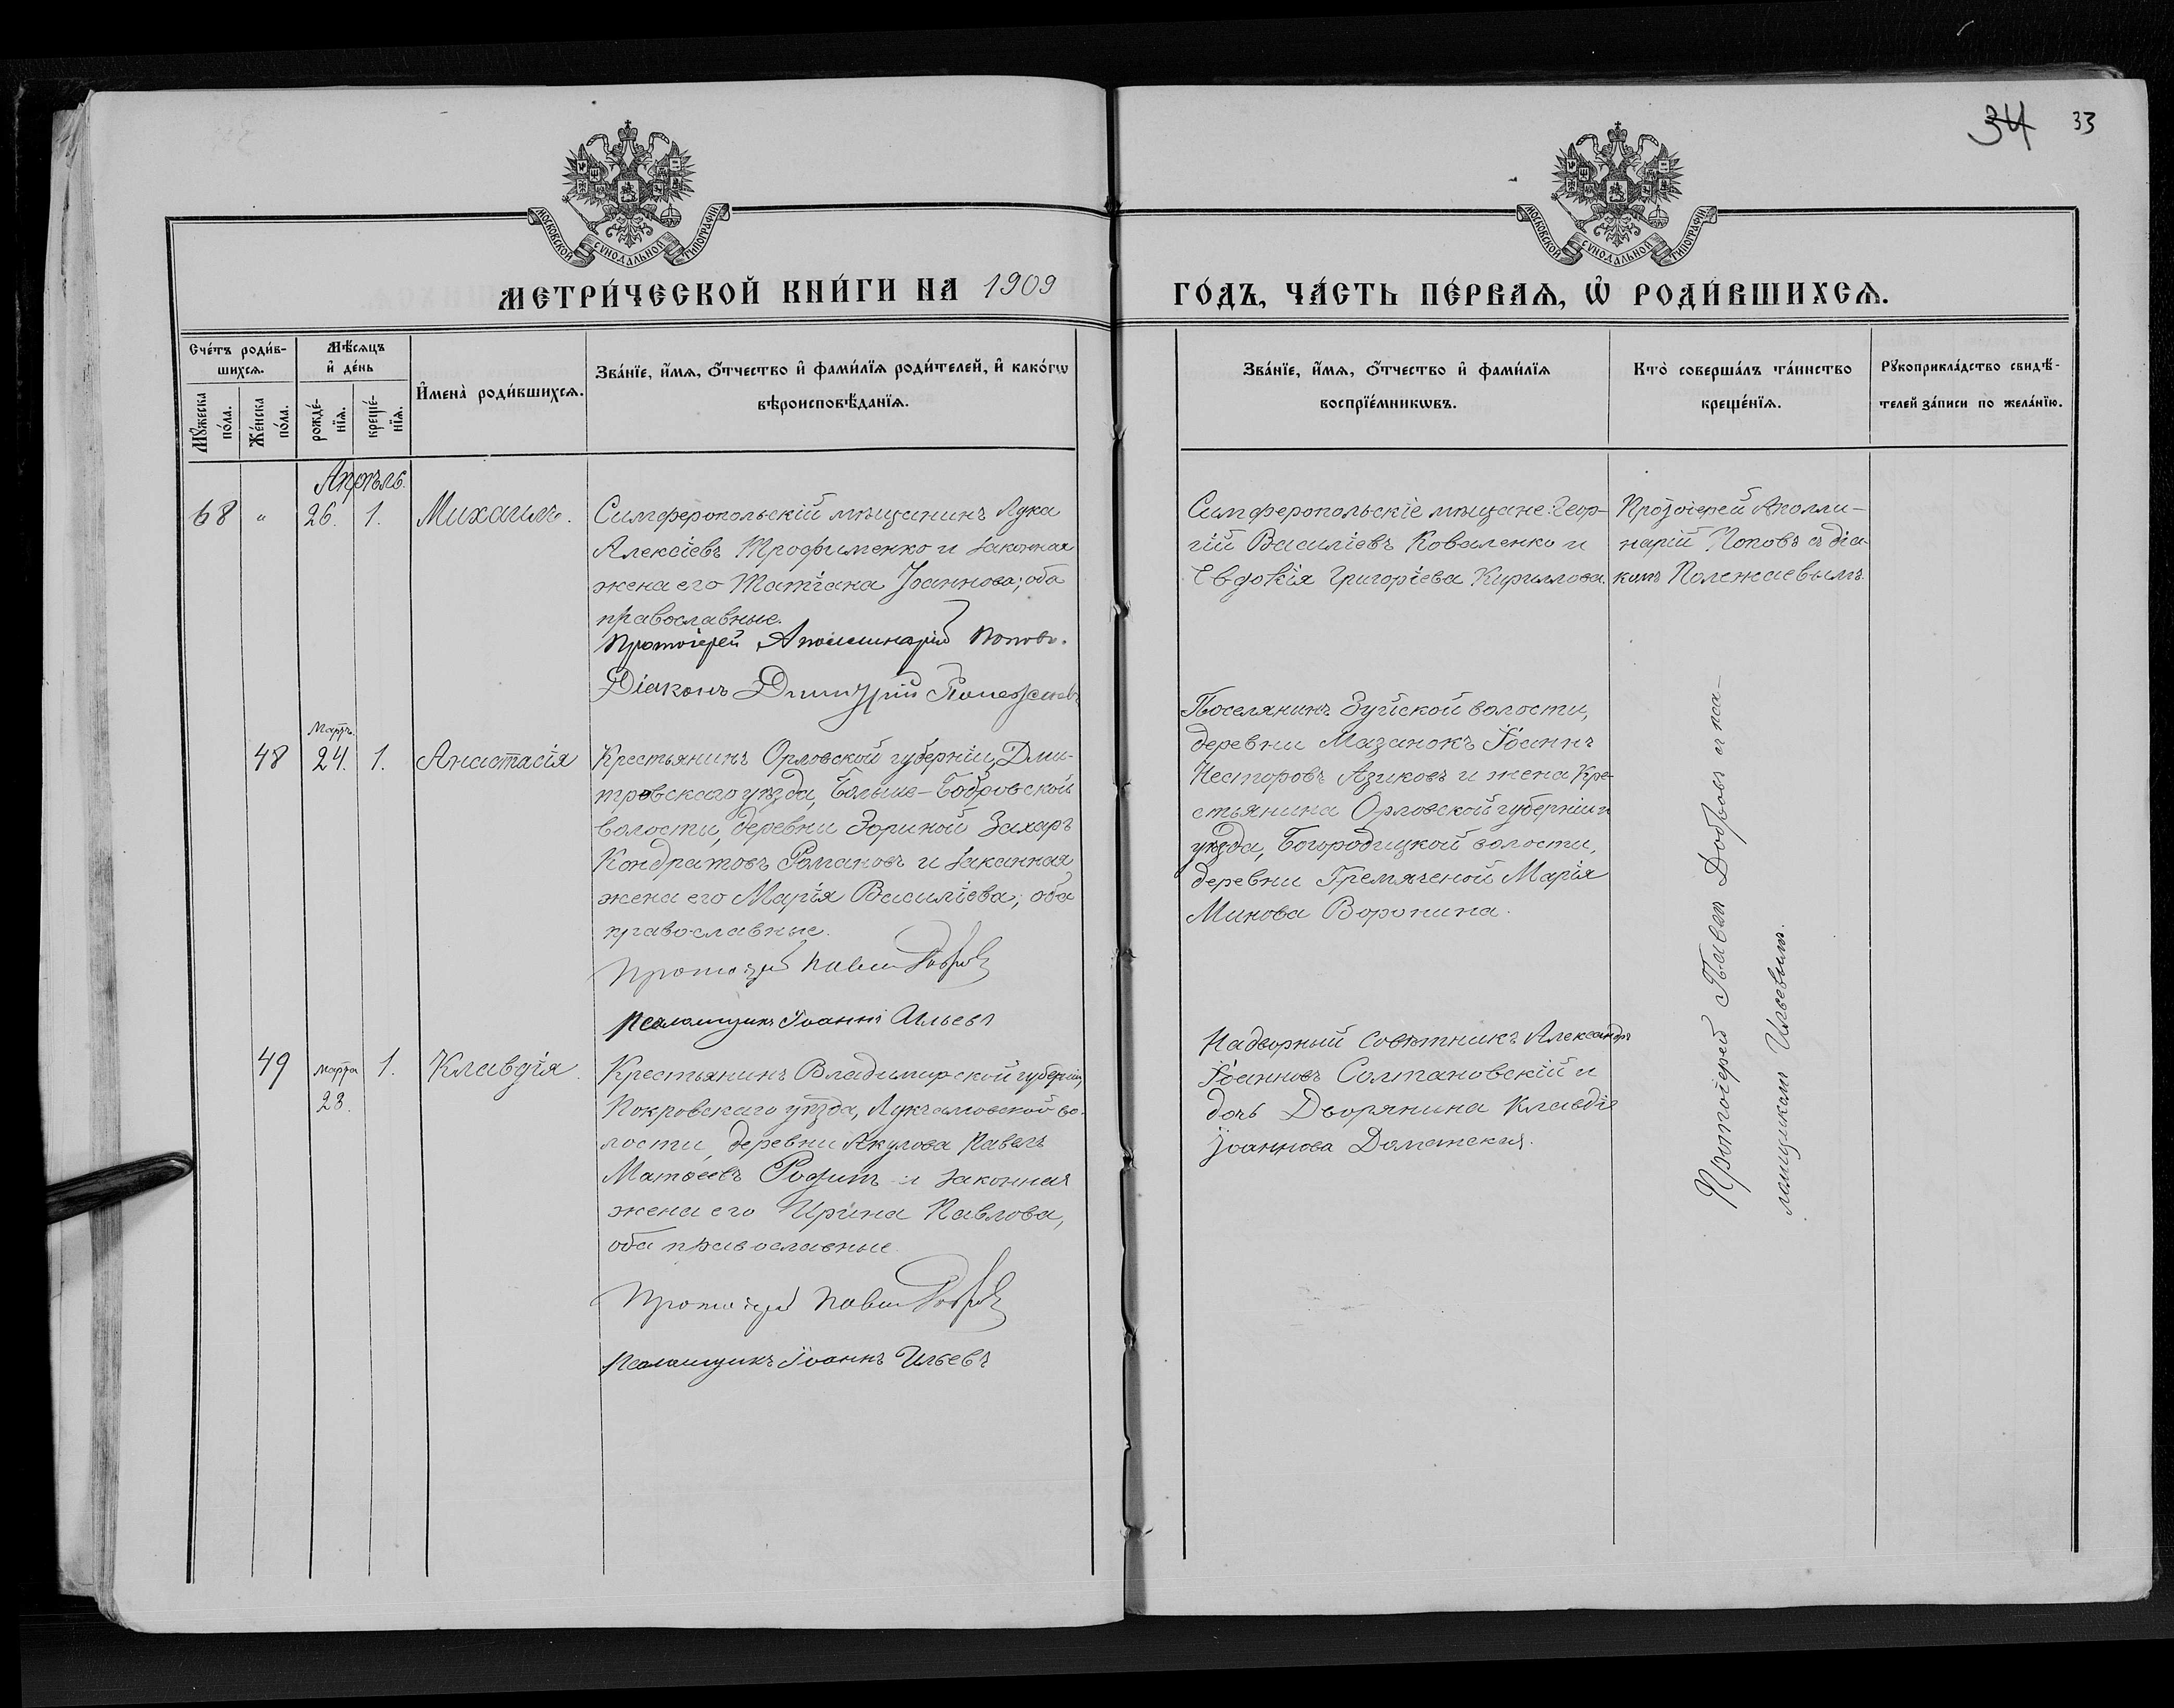 34 33
МОСКОВСКОЙ СѴНОДАЛЬНОЙ ТИПОГРАФІИ
МОСКОВСКОЙ СѴНОДАЛЬНОЙ ТИПОГРАФІИ
МЕТРИ́ЧЕСКОЙ КНИ́ГИ НА 1909
ГО́ДЪ, ЧА́СТЬ ПЕ́РВАѦ, Ѡ҆ РОДИ́ВШИХСѦ.
Сче́тъ роди́в-
шихсѧ.
Мꙋ́жеска по́ла.
Же́нска по́ла.
Мѣ́сѧцъ
и҆ де́нь
рожде́-
нїѧ.
креще́-
нїѧ.
И҆мена̀ роди́вшихсѧ.
Зва́нїе, и҆́мѧ, ѻ҆́тчество и҆ фами́лїѧ роди́телей, и҆ како́гѡ
вѣроисповѣ́данїѧ.
Зва́нїе, и҆́мѧ, ѻ҆́тчество и҆ фами́лїѧ
воспрїе́мникѡвъ.
Кто̀ соверша́лъ та́инство
креще́нїѧ.
Рꙋкоприкла́дство свидѣ́-
телей за́писи по жела́нїю.
Апрѣль.
68 " 26. 1. Михаилъ.
Симферопольскій мѣщанинъ Лука
Алексіевъ Трофименко и законная
жена его Татіана Іоаннова; оба
православные.
Протоіерей Аполлинарій Поповъ.
Діаконъ Димитрій Полежаевъ
Симферопольскіе мѣщане: Геор-
гій Василіевъ Коваленко и
Евдокія Григоріева Кириллова.
Протоіерей Аполли-
нарій Поповъ съ діа-
комъ Полежаевымъ.
Мартъ.
48 24. 1. Анастасія
Крестьянинъ Орловской губерніи, Дми-
тровскаго уѣзда, Больше-Бобровской
волости, деревни Зориной Захаръ
Кондратовъ Романовъ и законная
жена его Марія Василіева; оба
православные.
Протоіерей Павелъ Добровъ
Псаломщикъ Іоаннъ Ильевъ
Поселянинъ Зуйской волости,
деревни Мазанокъ Іоаннъ
Несторовъ Азиковъ и жена Кре-
стьянина Орловской губерніи и
уѣзда, Богородицкой волости,
деревни Гремяченой Марія
Минова Воронина.
49 марта 28. 1. Клавдія.
Крестьянинъ Владимирской губерніи,
Покровскаго уѣзда, во-
лости, деревни Акулова Павелъ
Матѳеевъ и законная
жена его Ирина Павлова,
оба православные.
Протоіерей Павелъ Добровъ
Псаломщикъ Іоаннъ Ильевъ
Надворный Совѣтникъ Александръ
Іоанновъ Солтановскій и
дочь Дворянина Клавдія
Іоаннова Доманская.
Протоіерей Павелъ Добровъ съ пса-
ломщикомъ Ильевымъ.